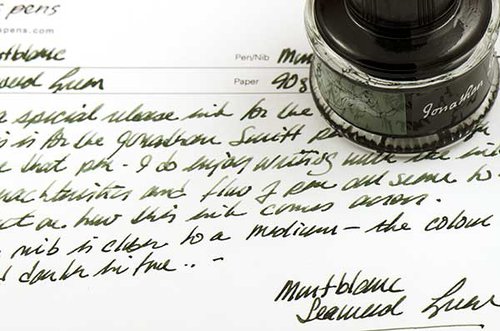 s pens
spens.com
ntblanc Pen/Nib Mun
aweed Green Paper 90g
a special release ink for the
s is for the Jonathan Swift pe
e that pen. I do enjoy writing with the ink
characteristics and flow of pen all seem to
ct on how this ink comes across.
nib is closer to a medium - the colour
d darker in tone.. -
Jonathan
Montblanc
Seaweed Green